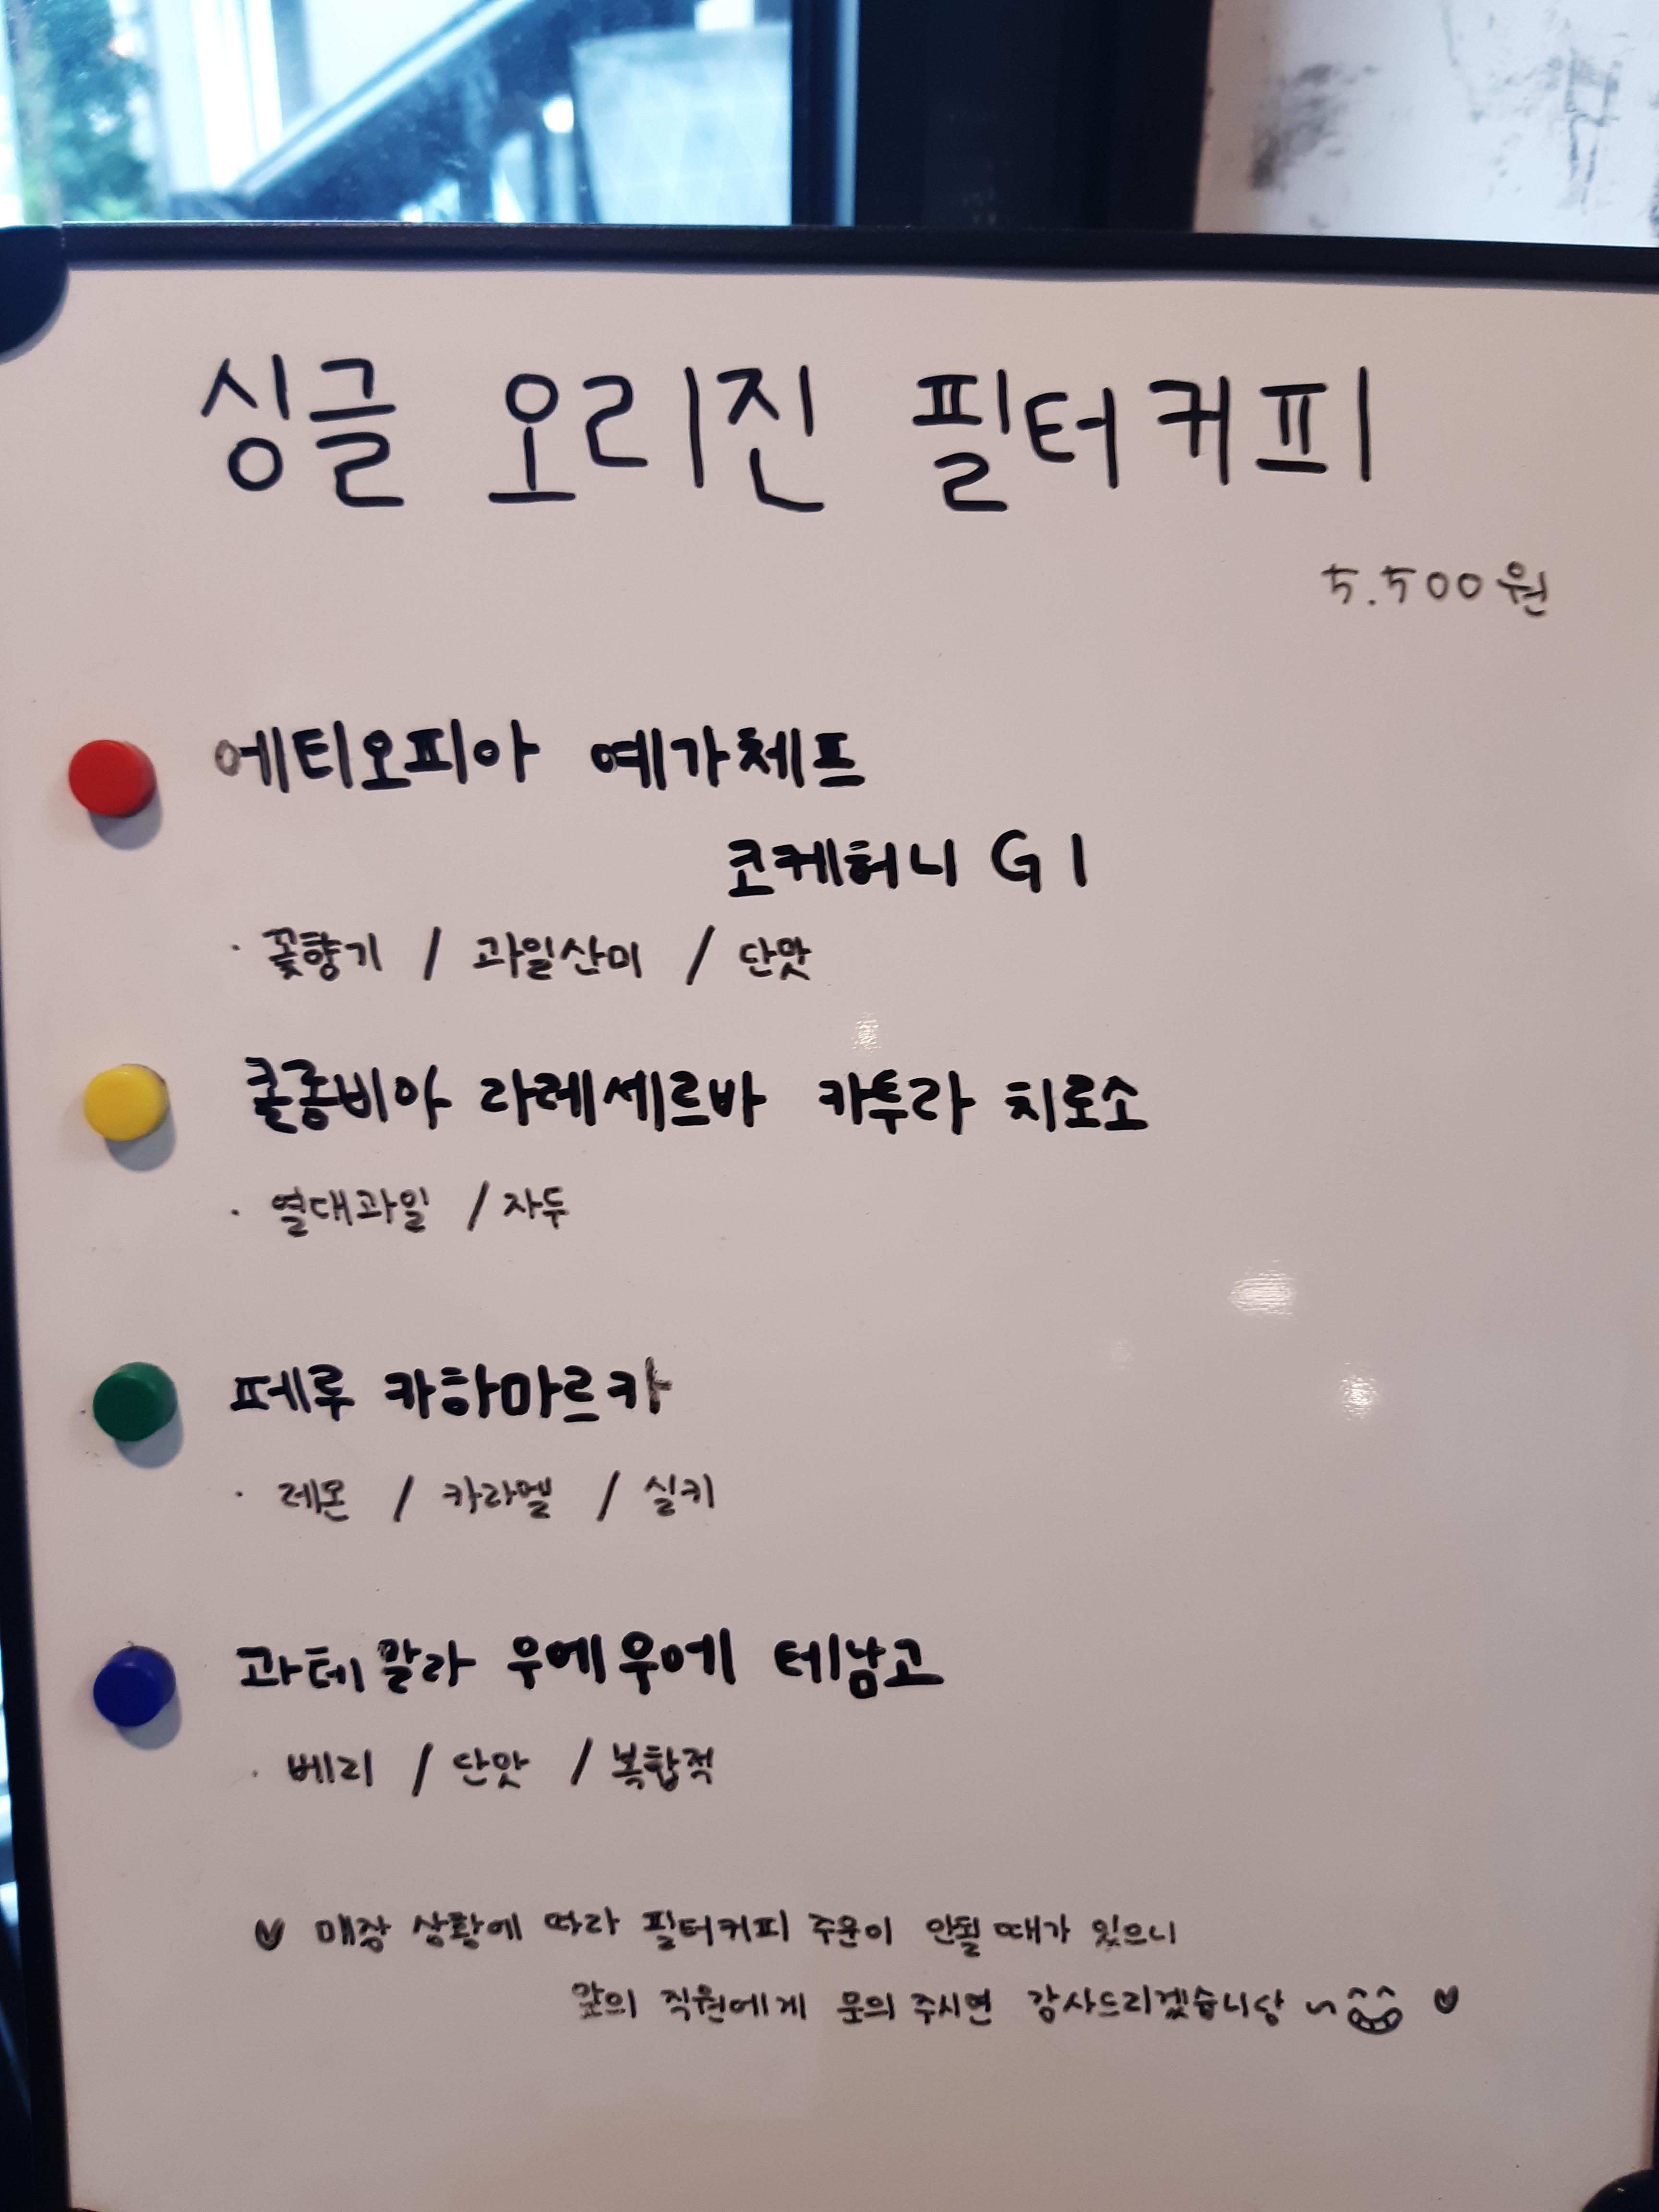 싱글 오리진 필터커피
5.500원
에티오피아 예가체프
코케허니 G1
· 꽃향기 / 과일산미 / 단맛
콜롬비아 라레세르바 카투라 치로소
· 열대과일 / 자두
페루 카하마르카
· 레몬 / 카라멜 / 실키
과테말라 우에우에 테낭고
· 베리 / 단맛 / 복합적
♥ 매장 상황에 따라 필터커피 주문이 안될 때가 있으니
앞의 직원에게 문의 주시면 감사드리겠습니당 ~ ^^ ♥